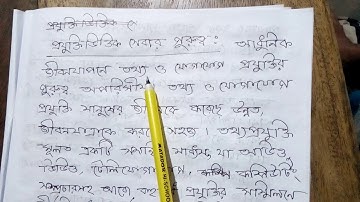 প্রযুক্তিভিত্তিক সে
প্রযুক্তিভিত্তিক সেবার গুরুত্ব : আধুনিক
জীবনযাপনে তথ্য ও যোগাযোগ প্রযুক্তির
গুরুত্ব অপরিসীম। তথ্য ও যোগাযোগ
প্রযুক্তি মানুষের জীবনকে করেছে উন্নত,
জীবনযাত্রাকে করেছে সহজ। তথ্যপ্রযুক্তি
মূলত একটি সমন্বিত যা অডিও,
ভিডিও, টেলিযোগাযোগ, কম্পিউটিং
সম্প্রচারসহ আরো বহু প্রযুক্তির সম্মিলনে